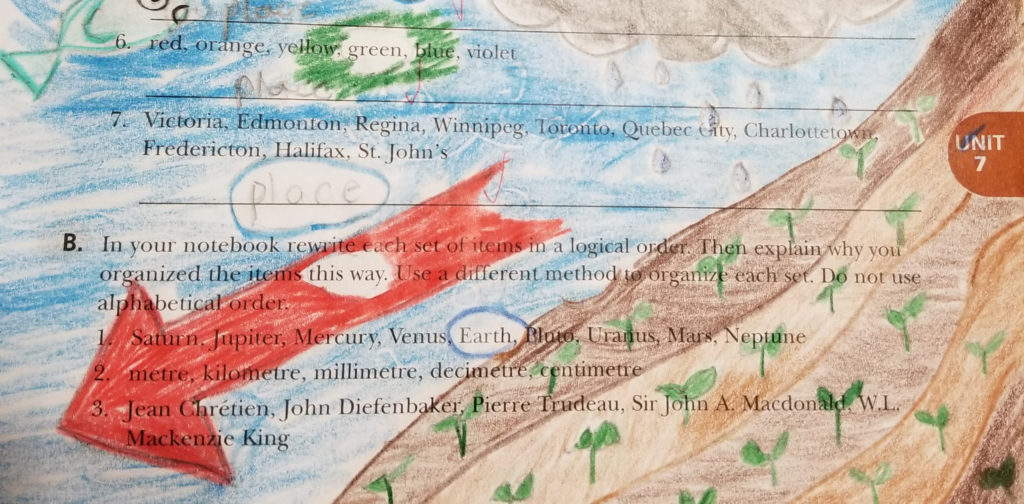 place
6. red, orange, yellow, green, blue, violet
place
7. Victoria, Edmonton, Regina, Winnipeg, Toronto, Quebec City, Charlottetown,
Fredericton, Halifax, St. John's
UNIT
7
place
B. In your notebook rewrite each set of items in a logical order. Then explain why you
organized the items this way. Use a different method to organize each set. Do not use
alphabetical order.
1. Saturn, Jupiter, Mercury, Venus, Earth, Pluto, Uranus, Mars, Neptune
2. metre, kilometre, millimetre, decimetre, centimetre
3. Jean Chrétien, John Diefenbaker, Pierre Trudeau, Sir John A. Macdonald, W.L.
Mackenzie King